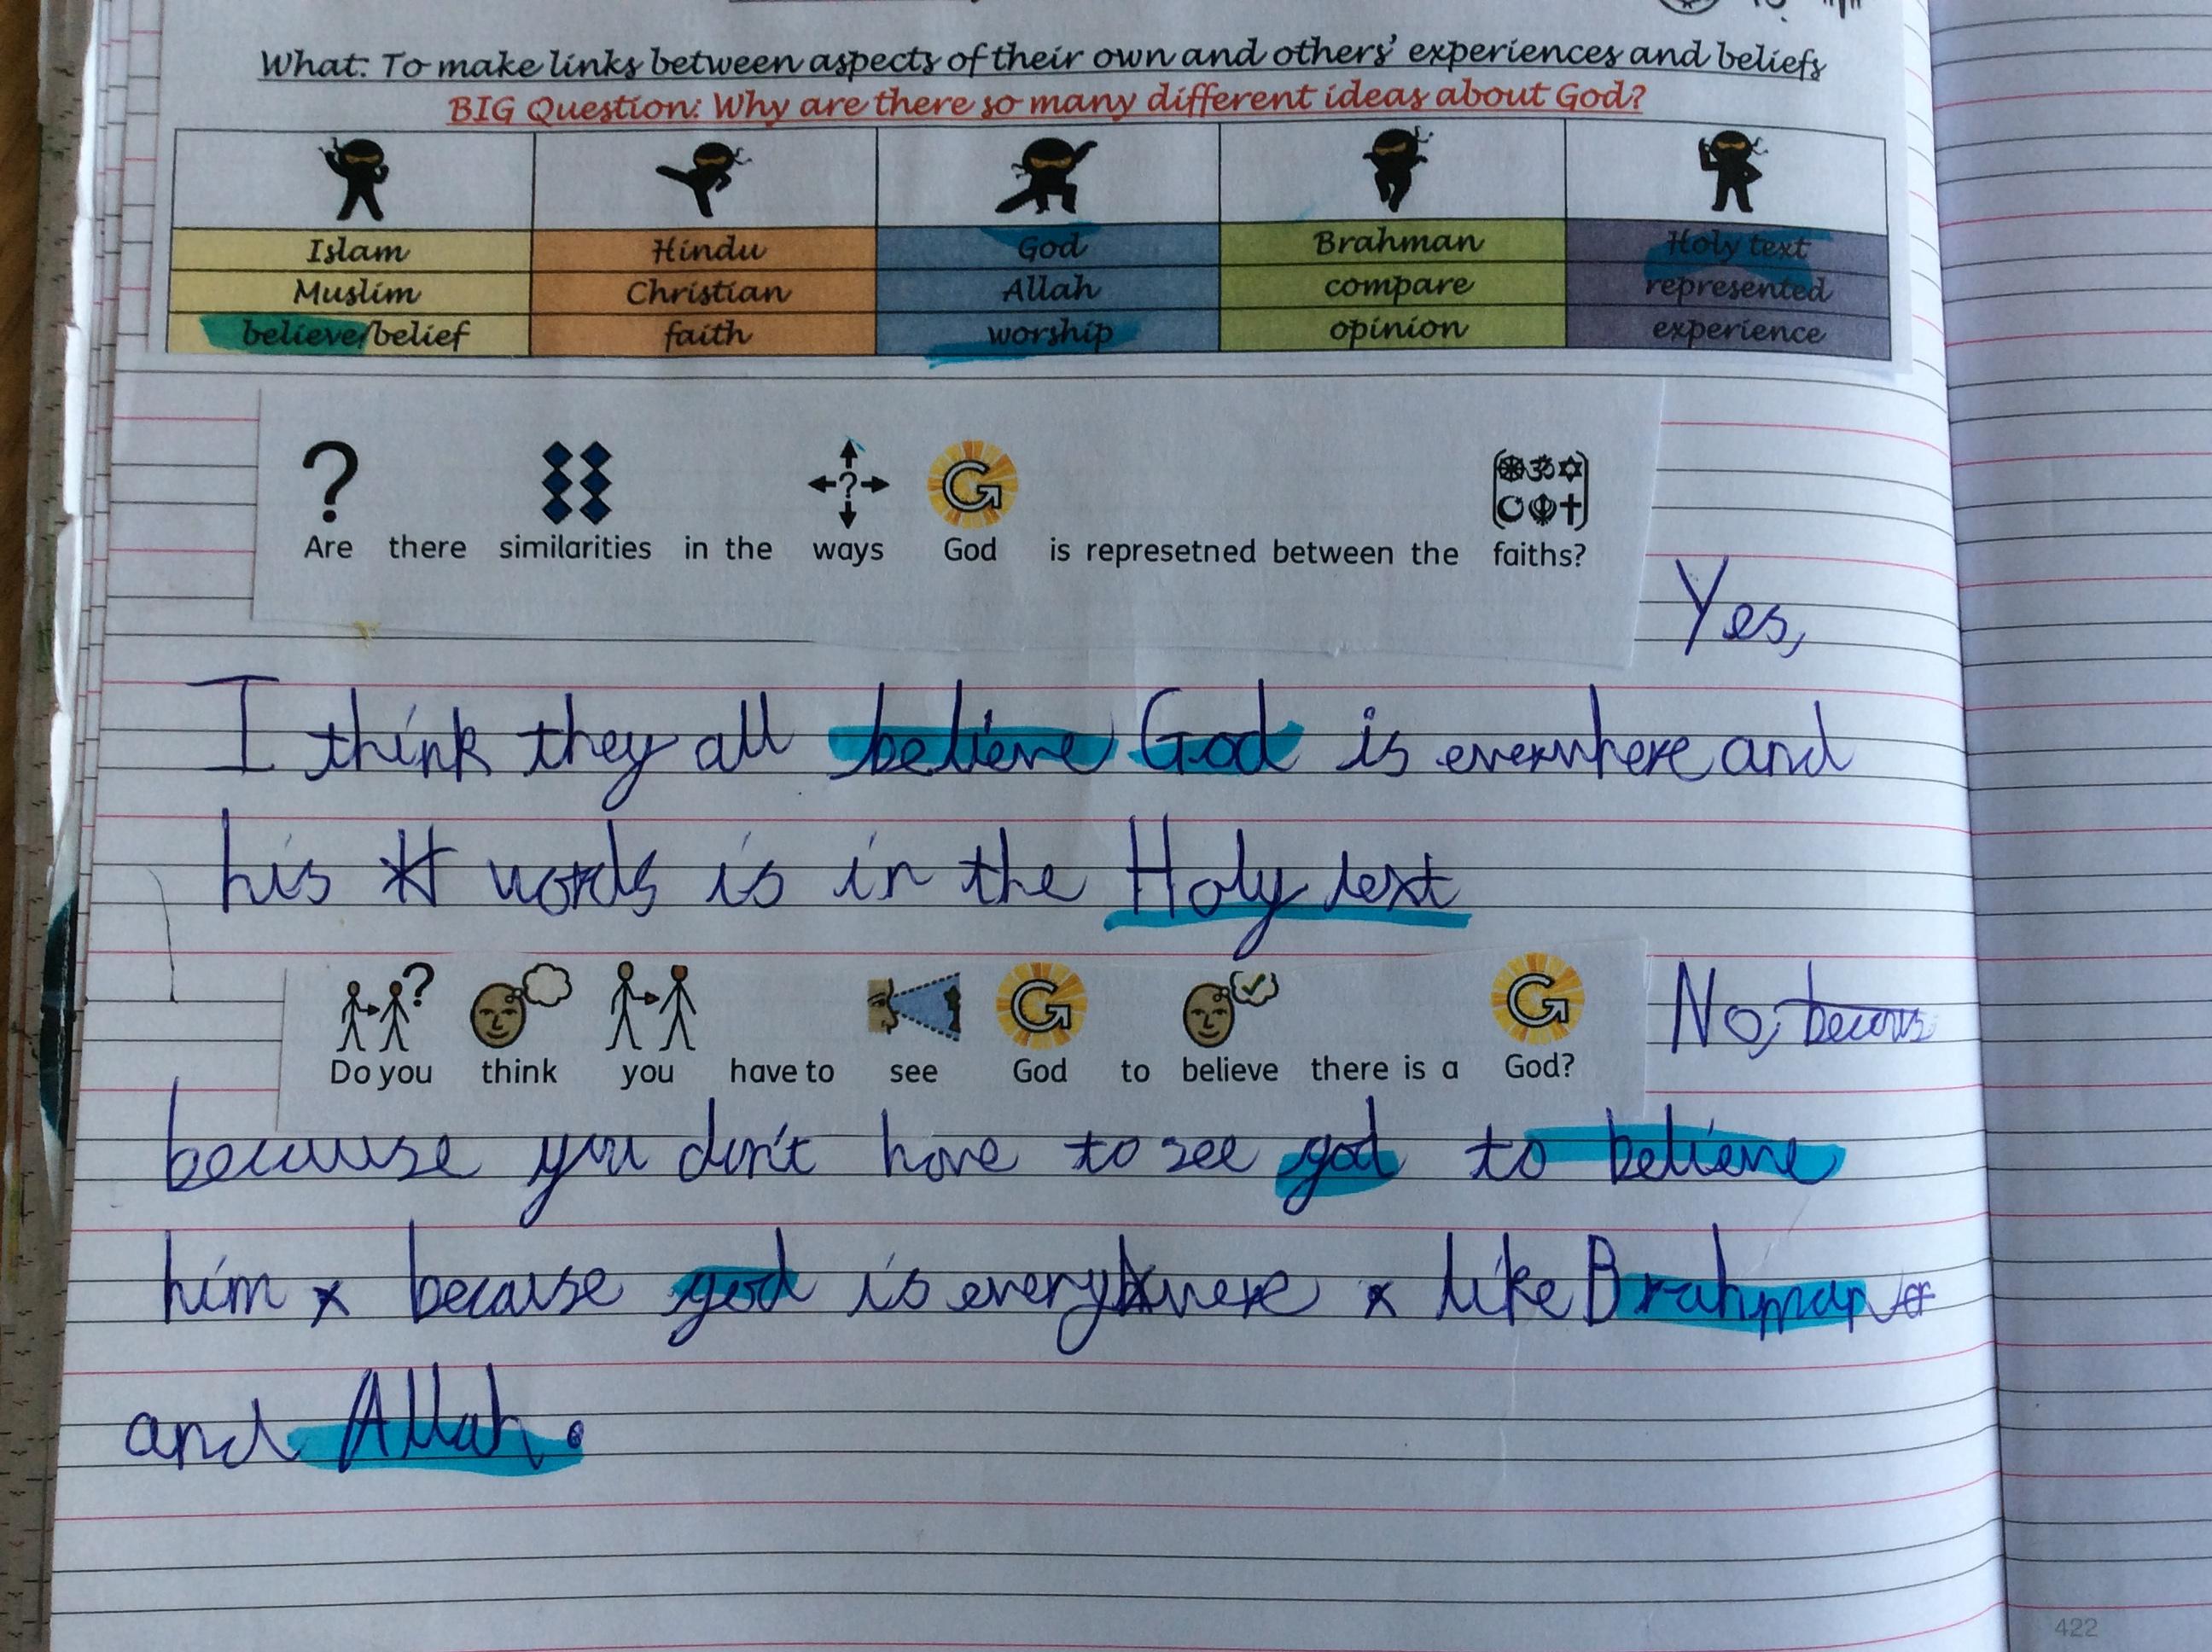 What: To make links between aspects of their own and others' experiences and beliefs
BIG Question: Why are there so many different ideas about God?
Islam Hindu God Brahman Holy text
Muslim Christian Allah compare represented
believe/belief faith worship opinion experience
? ? G
Are there similarities in the ways God is represetned between the faiths?
Yes,
I think they all believe God is everwhere and
his words is in the Holy text
? G G
Do you think you have to see God to believe there is a God?
No,
because you don't have to see god to believe
him because god is everywhere like Brahman
and Allah.
422